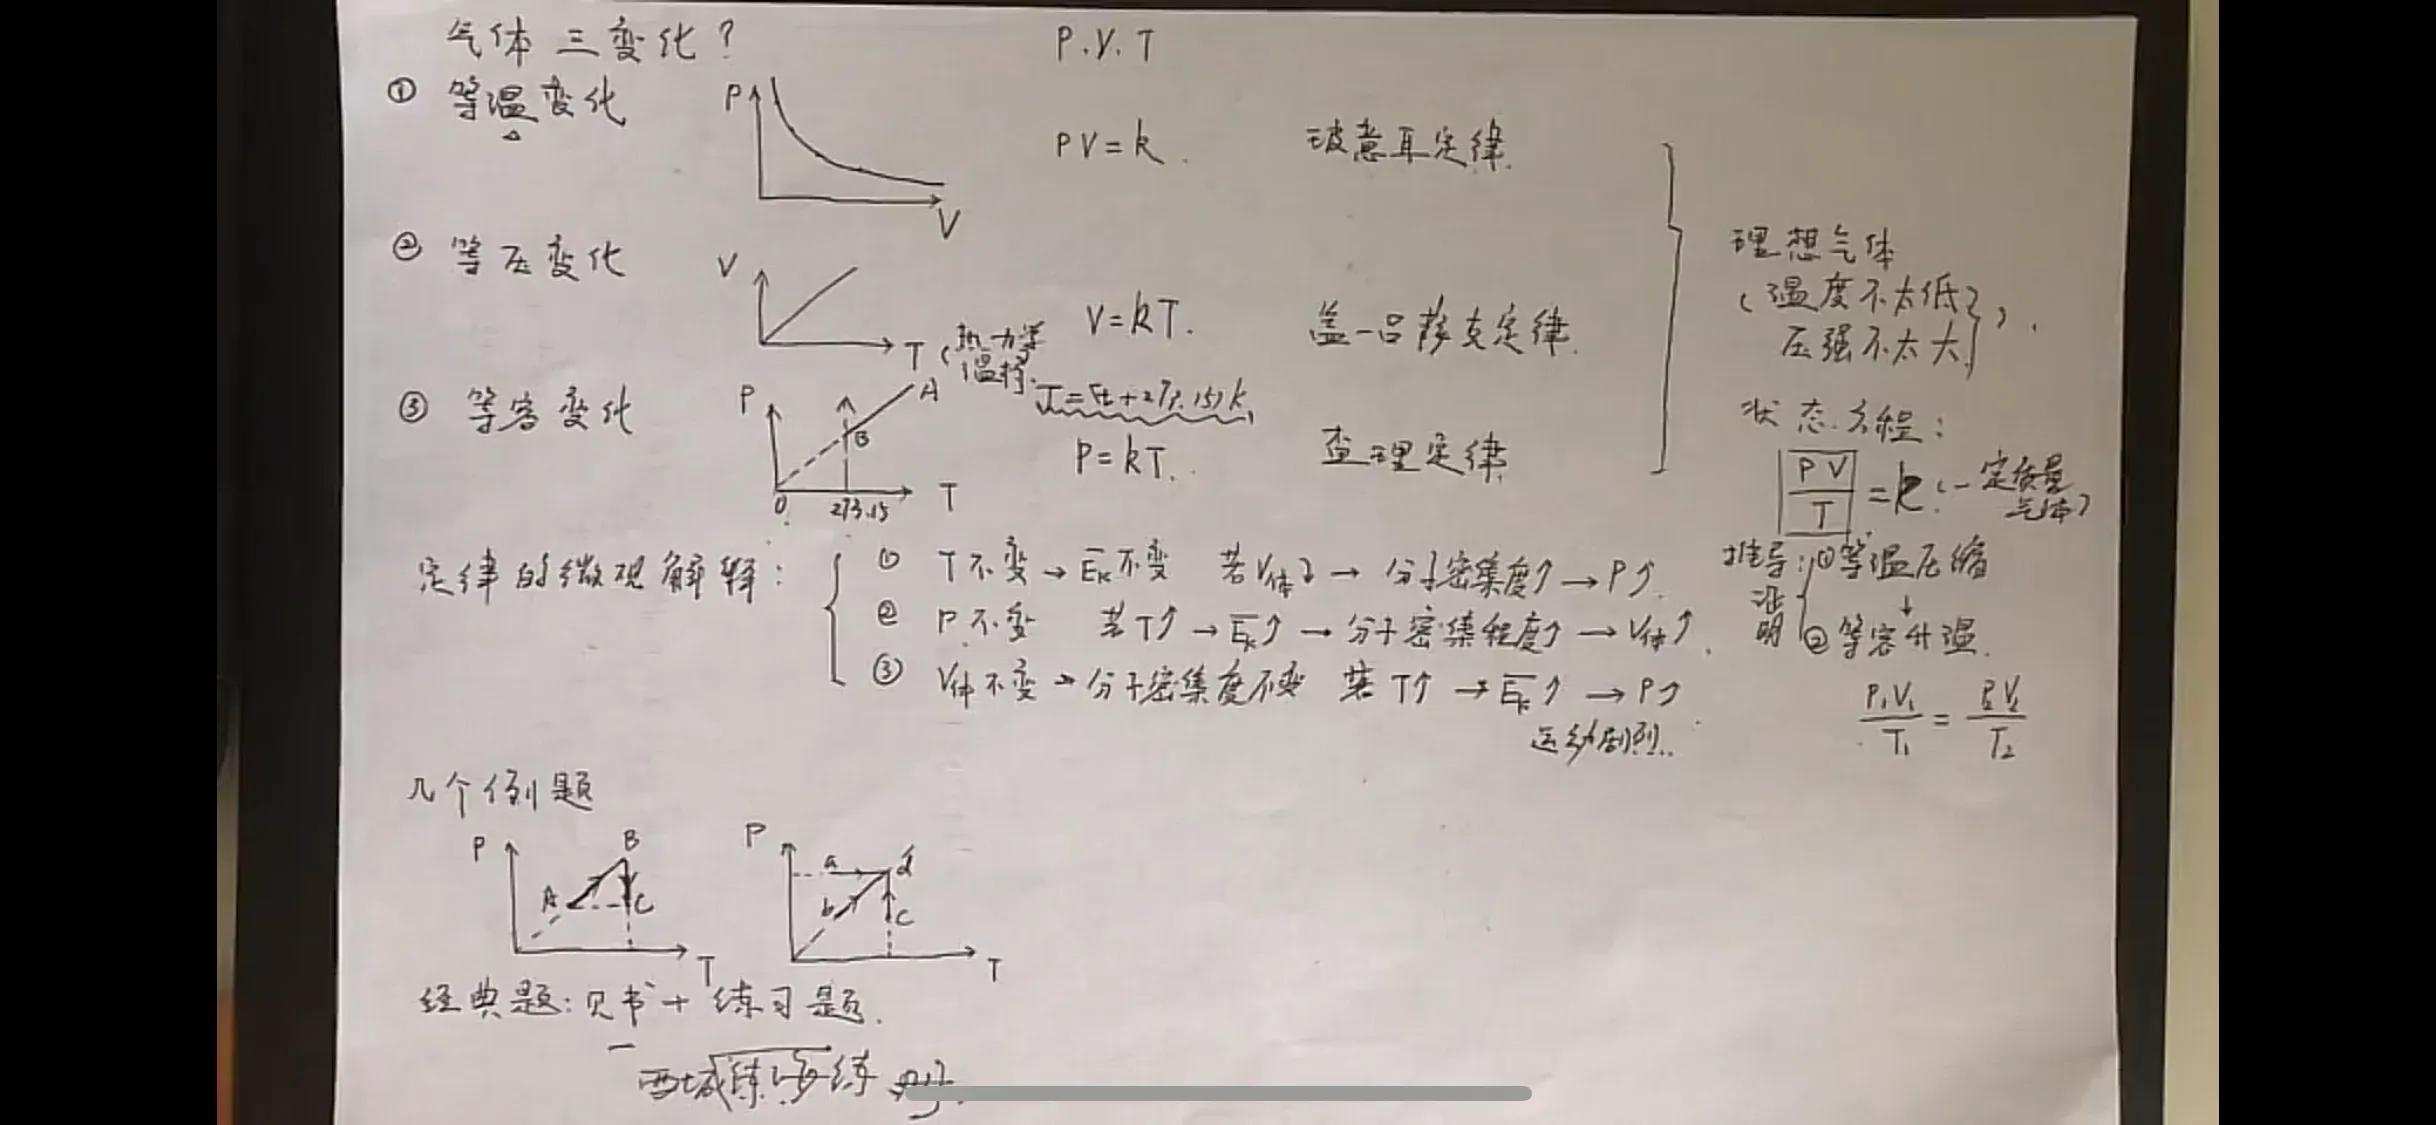 气体三变化? P.V.T
① 等温变化 P V PV=k. 玻意耳定律.
② 等压变化 V T (热力学温标. V=kT. 盖-吕萨克定律.
T=(t+273.15)K,
③ 等容变化 P A B 0 273.15 T P=kT. 查理定律.
理想气体
(温度不太低
压强不太大).
状态方程:
PV/T=k.(一定质量气体)
推导: ①等温压缩
↓
②等容升温.
P₁V₁/T₁ = P₂V₂/T₂
定律的微观解释:
① T不变→Ek不变 若V体↓→ 分子密集度↑→P↑.
② P不变 若T↑→Ek↑→分子密集程度↑→V体↑.
③ V体不变→分子密集度不变 若T↑→Ek↑→P↑
运动剧烈..
几个例题
P A B C T
P a b c d T
经典题:见书+练习题.
西城